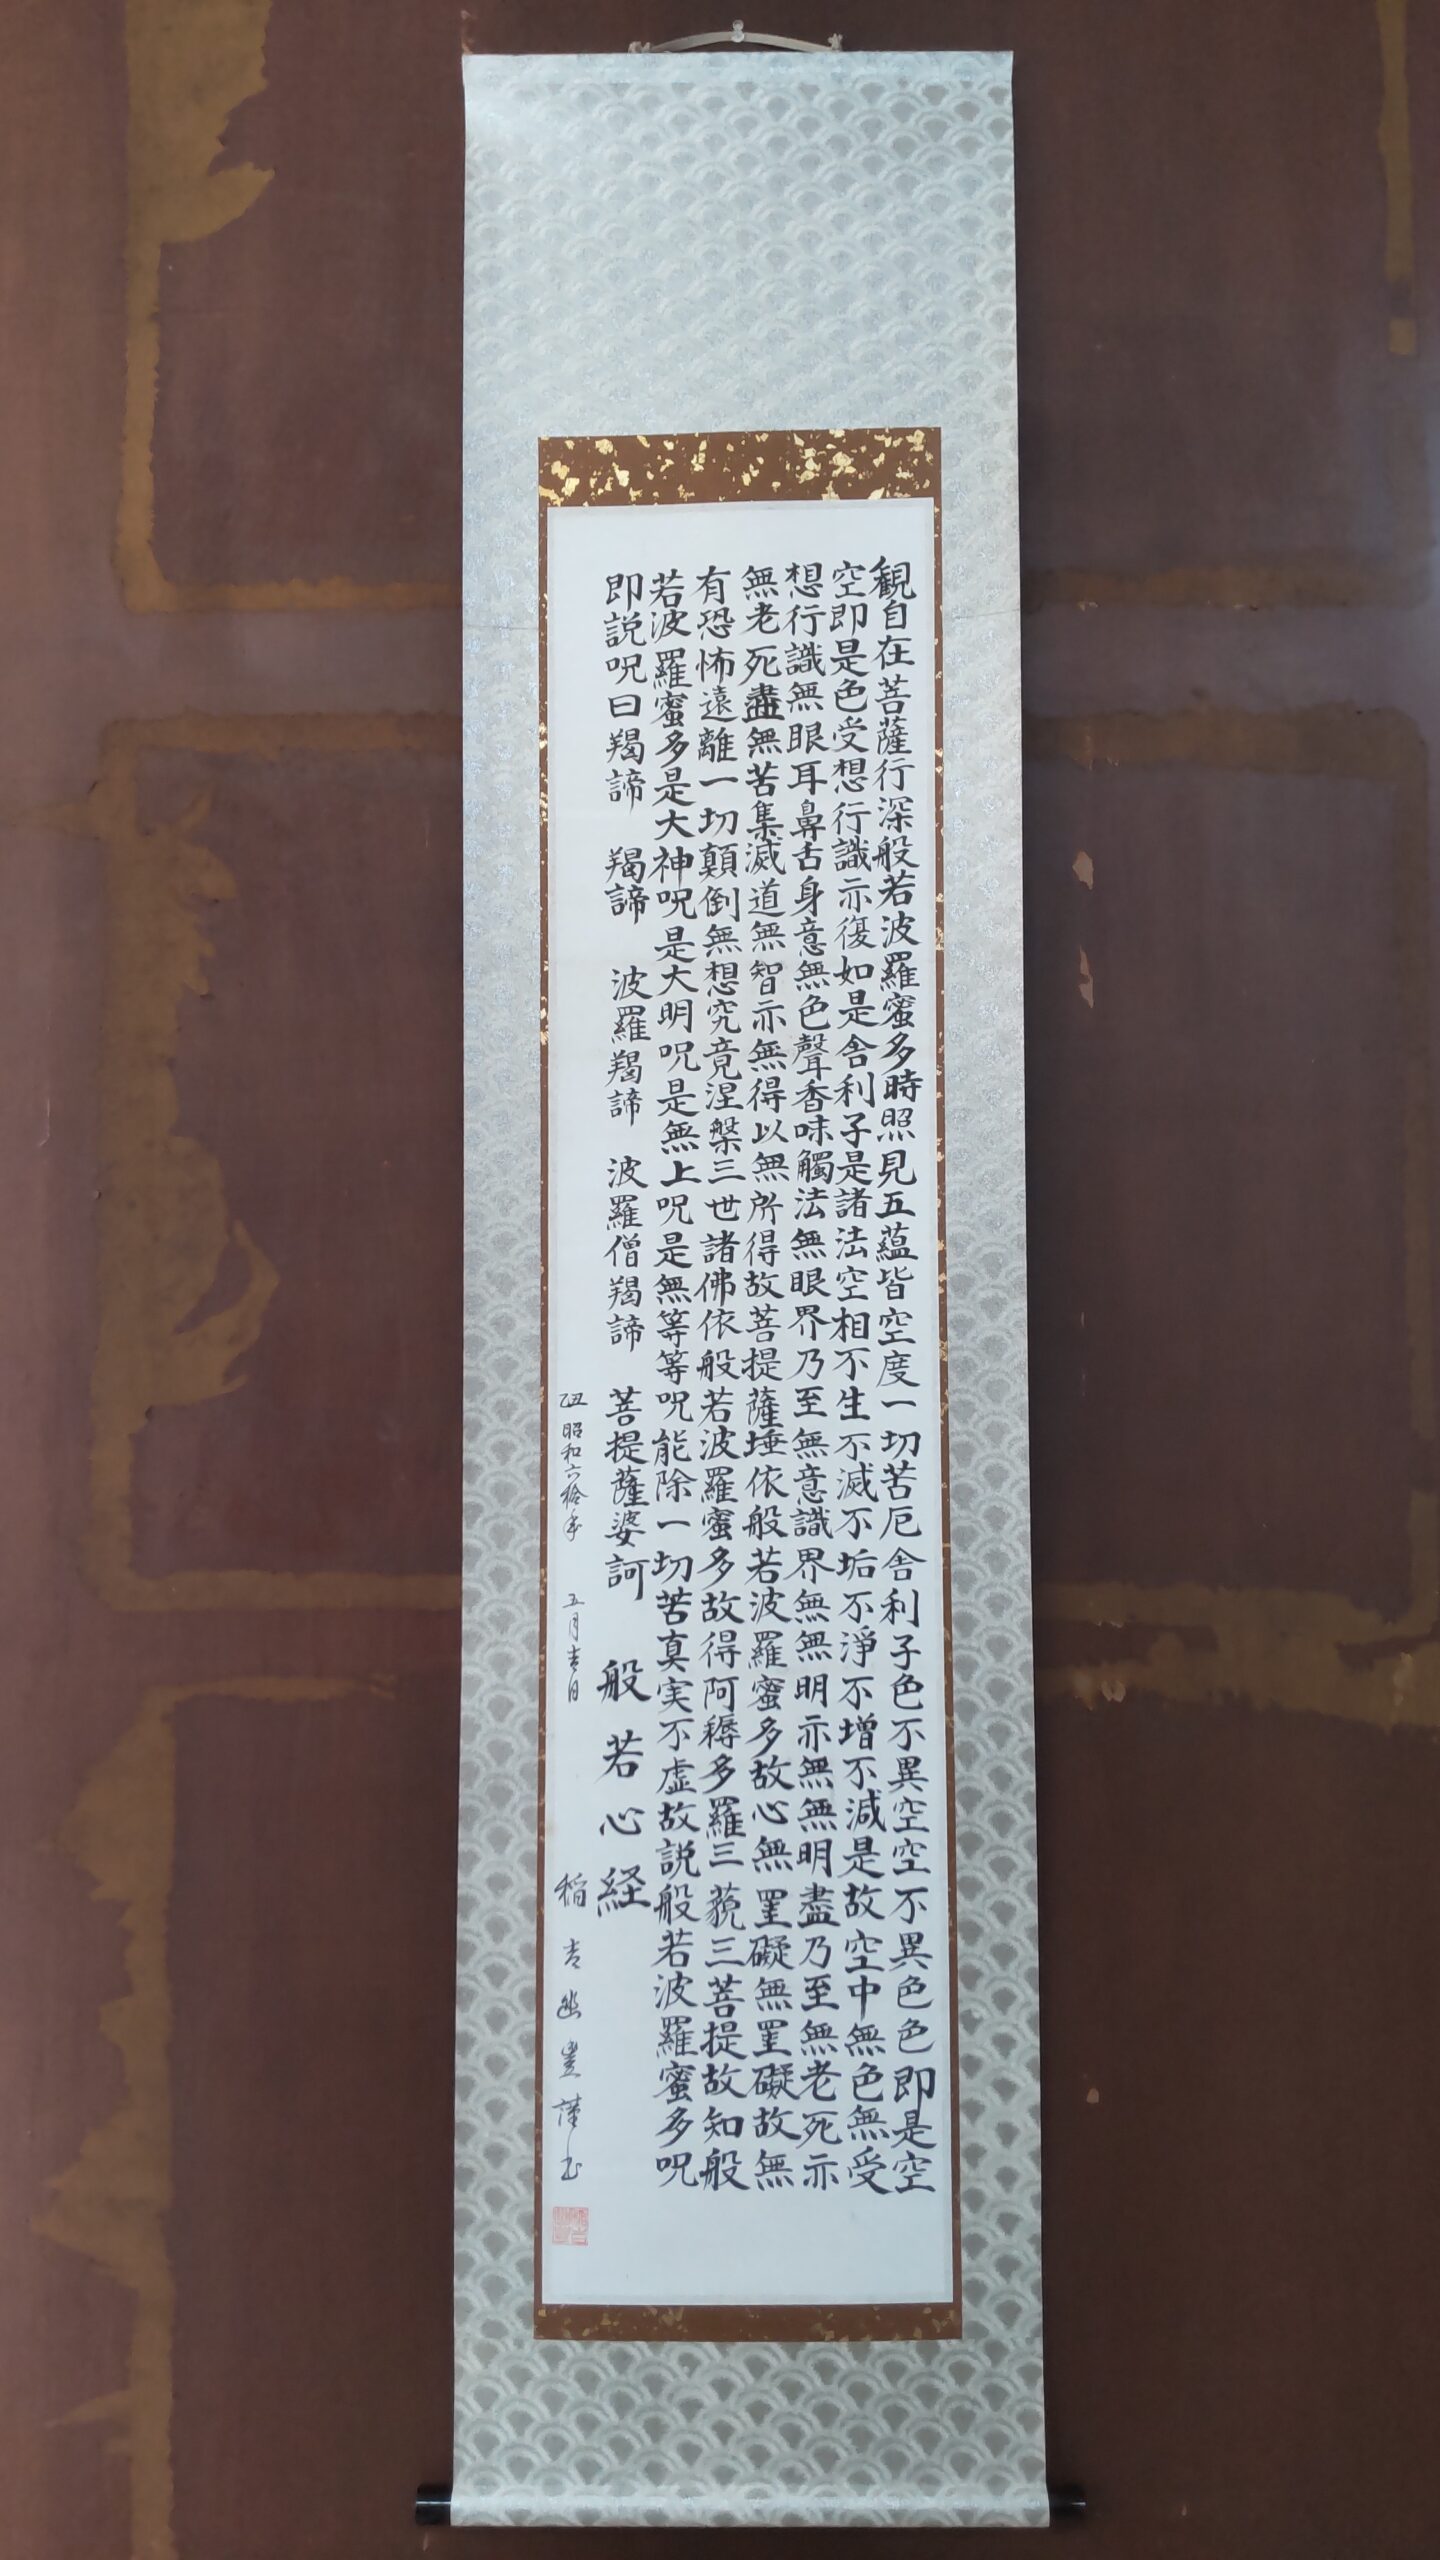 観自在菩薩行深般若波羅蜜多時照見五蘊皆空度一切苦厄舎利子色不異空空不異色色即是空
空即是色受想行識亦復如是舎利子是諸法空相不生不滅不垢不淨不増不減是故空中無色無受
想行識無眼耳鼻舌身意無色聲香味觸法無眼界乃至無意識界無無明亦無無明盡乃至無老死亦
無老死盡無苦集滅道無智亦無得以無所得故菩提薩埵依般若波羅蜜多故心無罣礙無罣礙故無
有恐怖遠離一切顛倒無想究竟涅槃三世諸佛依般若波羅蜜多故得阿耨多羅三藐三菩提故知般
若波羅蜜多是大神呪是大明呪是無上呪是無等等呪能除一切苦真実不虚故説般若波羅蜜多呪
即説呪曰羯諦 羯諦 波羅羯諦 波羅僧羯諦 菩提薩婆訶 般若心経
乙丑 昭和六拾年 五月吉日 稲吉 豊謹書